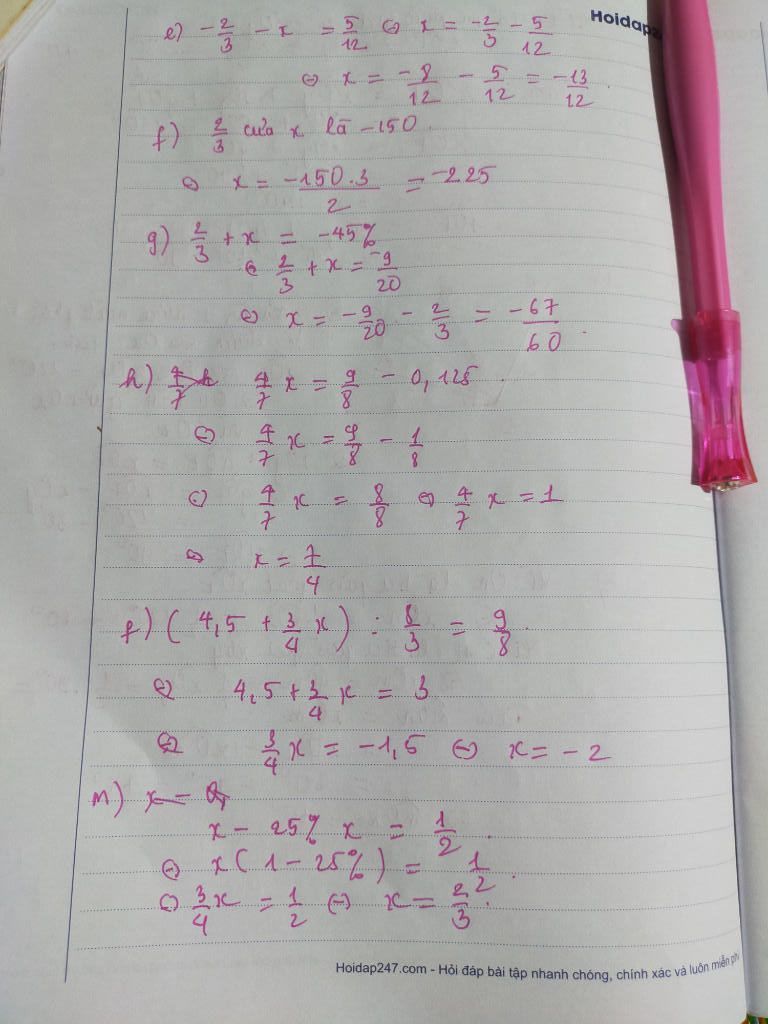 Hoidap247
e) -2/3 - x = 5/12 ⇔ x = -2/3 - 5/12
⇔ x = -8/12 - 5/12 = -13/12
f) 2/3 của x là -150.
⇔ x = -150.3/2 = -225
g) 2/3 + x = -45%
⇔ 2/3 + x = -9/20
⇔ x = -9/20 - 2/3 = -67/60.
h) 4/7 x = 9/8 - 0,125
⇔ 4/7 x = 9/8 - 1/8
⇔ 4/7 x = 8/8 ⇔ 4/7 x = 1
⇔ x = 7/4
f) (4,5 + 3/4 x) : 8/3 = 9/8.
⇔ 4,5 + 3/4 x = 3
⇔ 3/4 x = -1,5 ⇔ x = -2
m)
x - 25% x = 1/2.
⇔ x(1 - 25%) = 1/2.
⇔ 3/4 x = 1/2 ⇔ x = 2/3.
Hoidap247.com - Hỏi đáp bài tập nhanh chóng, chính xác và luôn miễn phí